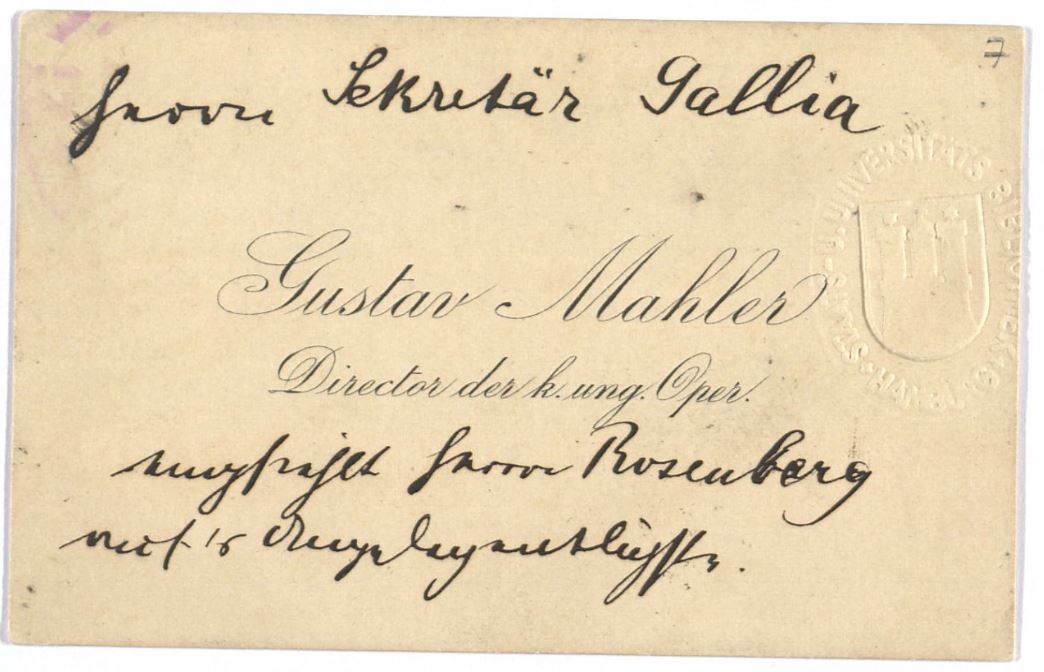 7
Herrn Sekretär Gallia
Gustav Mahler
Director der k. ung. Oper.
empfiehlt Herrn Rosenberg
auf's Angelegentlichste.
STAATS- U. UNIVERSITÄTS BIBLIOTHEK HAMBURG